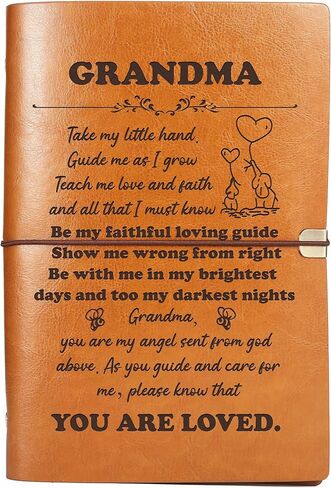 GRANDMA
Take my little hand,
Guide me as I grow
Teach me love and faith
and all that I must know
Be my faithful loving guide
Show me wrong from right
Be with me in my brightest
days and too my darkest nights
Grandma,
you are my angel sent from god
above. As you guide and care for
me, please know that
YOU ARE LOVED.